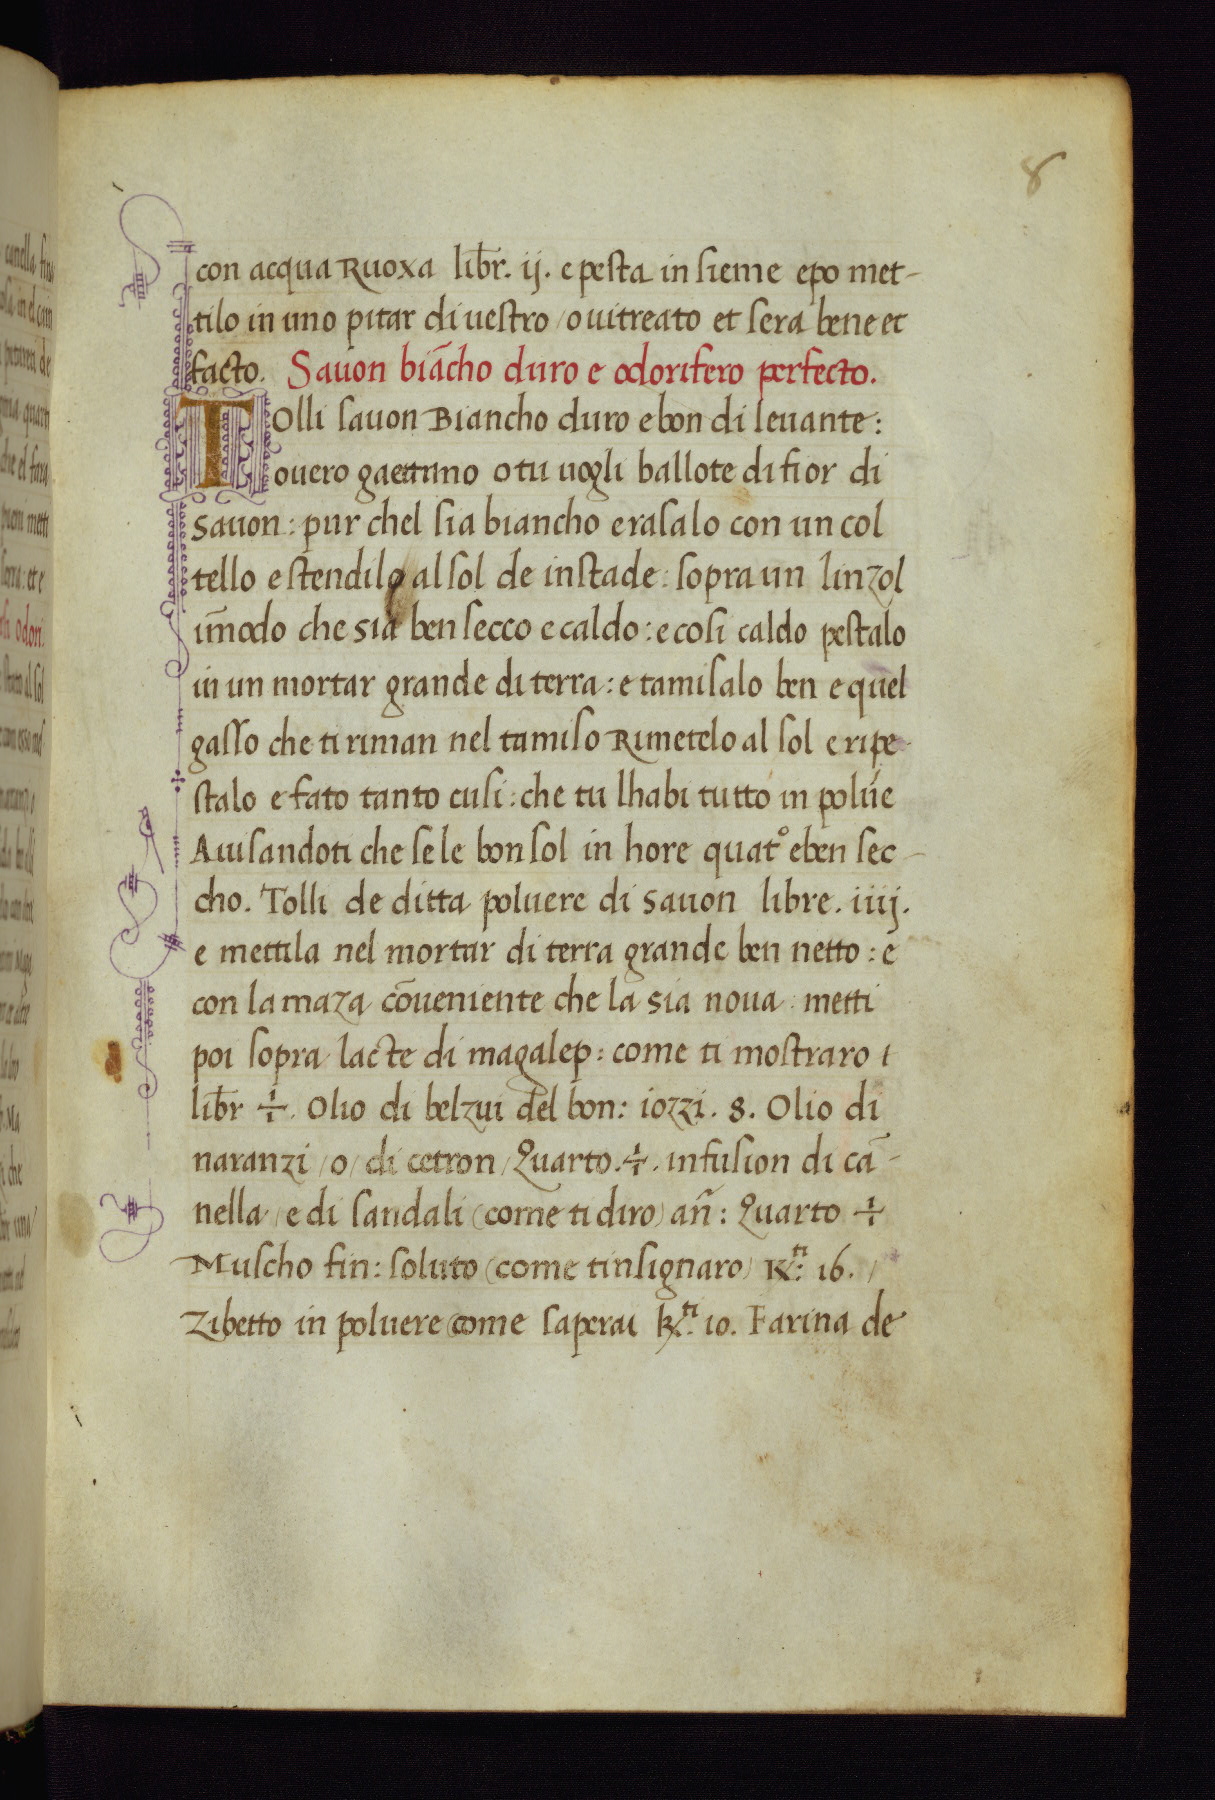 8
con acqua Ruoxa lib̄r. ij. e pesta in sieme epo met-
tilo in uno pitar di uestro / o uitreato et sera bene et
facto. Sauon biācho duro e odorifero perfecto.
TOlli sauon Biancho duro e bon di leuante:
ouero gaettano o tu uogli ballote di fior di
sauon: pur chel sia biancho e rasalo con un col
tello e stendilo al sol de instade: sopra un linzol
im̄odo che sia ben secco e caldo: e cosi caldo pestalo
in un mortar grande di terra: e tamisalo ben e quel
gasso che ti riman nel tamiso Rimetelo al sol e ripe-
stalo e fato tanto cusi: che tu lhabi tutto in polúe
Auisandoti che se le bon sol in hore quatº e ben sec-
cho. Tolli de ditta poluere di sauon libre. iiij.
e mettila nel mortar di terra grande ben netto: e
con la maza cōueniente che la sia noua: metti
poi sopra lacte di magalep: come ti mostraro i
lib̄r ÷. Olio di belzui del bon: iozzi. 8. Olio di
naranzi / o / di cetron / Quarto. ÷. infusion di cā-
nella / e di sandali (come ti diro) an̄: Quarto ÷
Muscho fin: soluto (come tinsignaro) K.ti 16. /
Zibetto in poluere (come saperai K.ti 10. Farina de